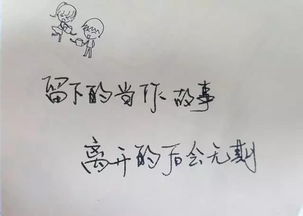 留下的当作故事
离开的后会无期